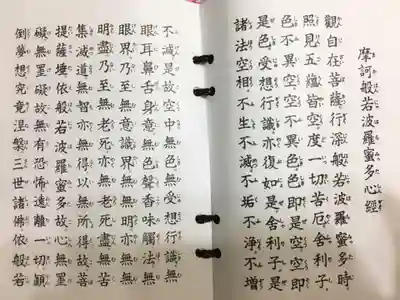 摩訶般若波羅蜜多心經
觀自在菩薩行深般若波羅蜜多時
照見五蘊皆空度一切苦厄舍利子
色不異空空不異色色即是空空即
是色受想行識亦復如是舍利子是
諸法空相不生不滅不垢不淨不增
不減是故空中無色無受想行識無
眼耳鼻舌身意無色聲香味觸法無
眼界乃至無意識界無無明亦無無
明盡乃至無老死亦無老死盡無苦
集滅道無智亦無得以無所得故菩
提薩埵依般若波羅蜜多故心無罣
礙無罣礙故無有恐怖遠離一切顛
倒夢想究竟涅槃三世諸佛依般若